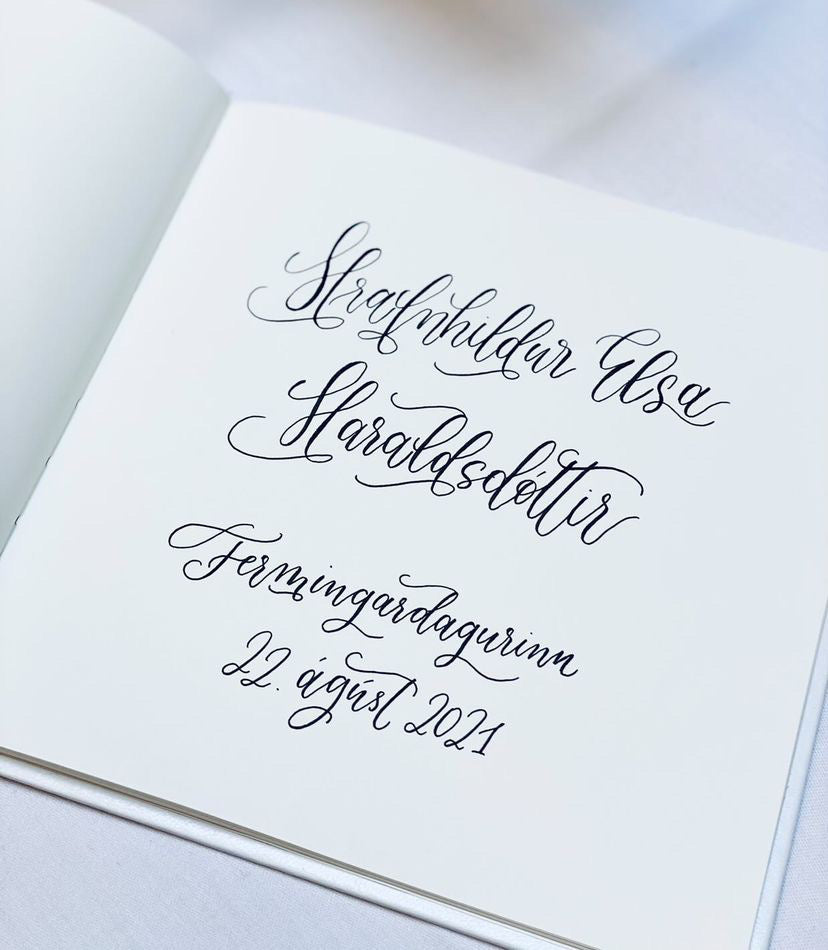 Hrafnhildur Elsa
Haraldsdóttir
Fermingardagurinn
22. ágúst 2021